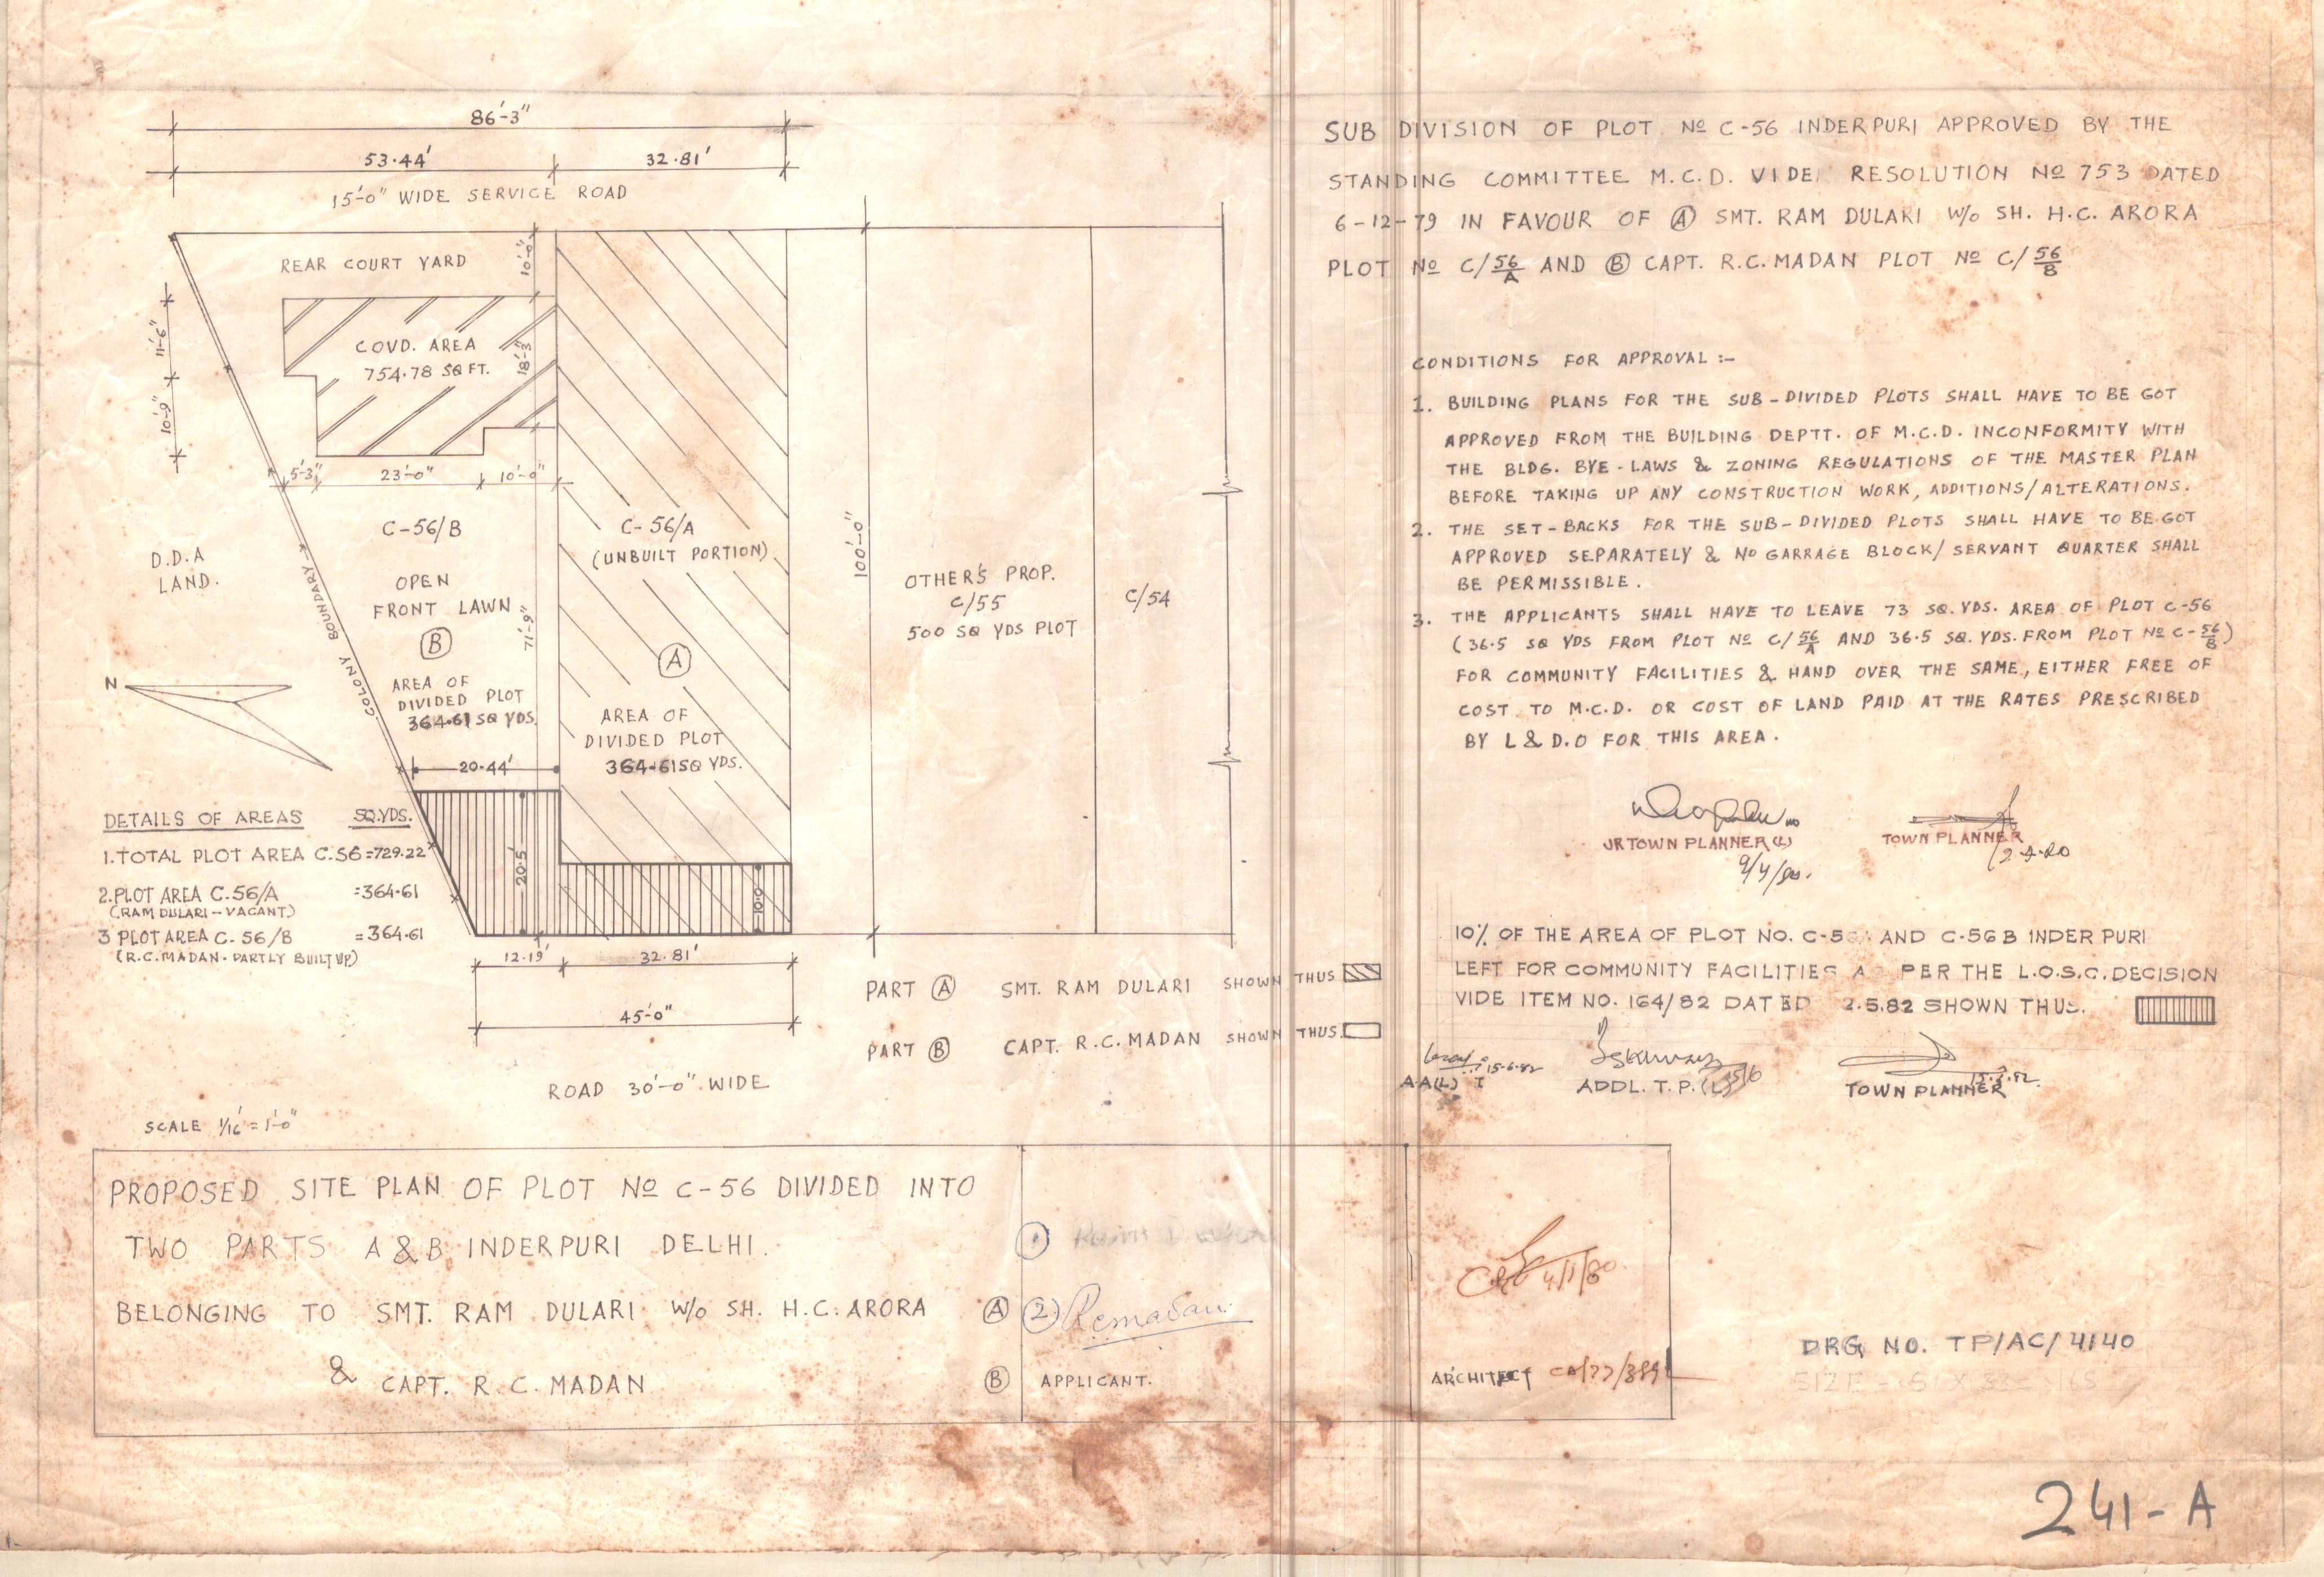 86'-3"
53.44' 32.81'
15'-0" WIDE SERVICE ROAD
REAR COURT YARD
10'-0"
11'-6"
10'-9"
COVD. AREA
754.78 SQ FT.
18'-3"
5'-3" 23'-0" 10'-0"
C-56/B
OPEN
FRONT LAWN
B
71'-9"
AREA OF
DIVIDED PLOT
364.61 SQ YDS.
D.D.A
LAND.
COLONY BOUNDARY
N
C-56/A
(UNBUILT PORTION)
A
AREA OF
DIVIDED PLOT
364.61 SQ YDS.
100'-0"
OTHER'S PROP.
C/55
500 SQ YDS PLOT
C/54
20.44'
20.5'
10.0
12.19' 32.81'
45'-0"
ROAD 30'-0" WIDE
DETAILS OF AREAS SQ.YDS.
1. TOTAL PLOT AREA C.56 =729.22
2. PLOT AREA C.56/A =364.61
(RAM DULARI - VACANT)
3 PLOT AREA C.56/B =364.61
(R.C. MADAN. PARTLY BUILT UP)
PART A SMT. RAM DULARI SHOWN THUS
PART B CAPT. R.C. MADAN SHOWN THUS.
SCALE 1/16' = 1'-0"
PROPOSED SITE PLAN OF PLOT No C-56 DIVIDED INTO
TWO PARTS A & B INDERPURI DELHI.
BELONGING TO SMT. RAM DULARI W/o SH. H.C. ARORA A
& CAPT. R.C. MADAN B
1
2 Rcmadan
APPLICANT.
4/1/80
ARCHITECT
SUB DIVISION OF PLOT No C-56 INDERPURI APPROVED BY THE
STANDING COMMITTEE M.C.D. VIDE RESOLUTION No 753 DATED
6-12-79 IN FAVOUR OF A SMT. RAM DULARI W/o SH. H.C. ARORA
PLOT No C/56/A AND B CAPT. R.C. MADAN PLOT No C/56/B
CONDITIONS FOR APPROVAL :-
1. BUILDING PLANS FOR THE SUB-DIVIDED PLOTS SHALL HAVE TO BE GOT
APPROVED FROM THE BUILDING DEPTT. OF M.C.D. INCONFORMITY WITH
THE BLDG. BYE-LAWS & ZONING REGULATIONS OF THE MASTER PLAN
BEFORE TAKING UP ANY CONSTRUCTION WORK, ADDITIONS/ALTERATIONS.
2. THE SET-BACKS FOR THE SUB-DIVIDED PLOTS SHALL HAVE TO BE GOT
APPROVED SEPARATELY & No GARRAGE BLOCK/SERVANT QUARTER SHALL
BE PERMISSIBLE.
3. THE APPLICANTS SHALL HAVE TO LEAVE 73 SQ. YDS. AREA OF PLOT C-56
(36.5 SQ YDS FROM PLOT No C/56/A AND 36.5 SQ. YDS. FROM PLOT No C-56/B)
FOR COMMUNITY FACILITIES & HAND OVER THE SAME, EITHER FREE OF
COST TO M.C.D. OR COST OF LAND PAID AT THE RATES PRESCRIBED
BY L & D.O FOR THIS AREA.
JR TOWN PLANNER (L) TOWN PLANNER
9/4/80.
10% OF THE AREA OF PLOT NO. AND C-56B INDER PURI
LEFT FOR COMMUNITY FACILITIES PER THE L.O.S.C. DECISION
VIDE ITEM NO. 164/82 DATED 2.5.82 SHOWN THUS.
15-6-82
A.A(L) I ADDL. T.P. (L) TOWN PLANNER
DRG NO. TP/AC/4140
241-A